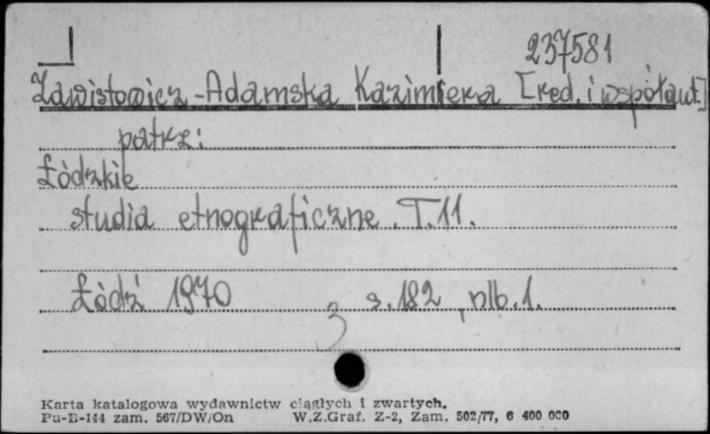 237581
Zawistowicz-Adamska Kazimiera [red. i współaut.]
patrz:
Łódzkie
studia etnograficzne. T.11.
Łódź 1970 s. 182, nlb. 1.
3
Karta katalogowa wydawnictw ciągłych i zwartych.
Pu-B-144 zam. 567/DW/On W.Z.Graf. Z-2, Zam. 502/77, 6 400 000